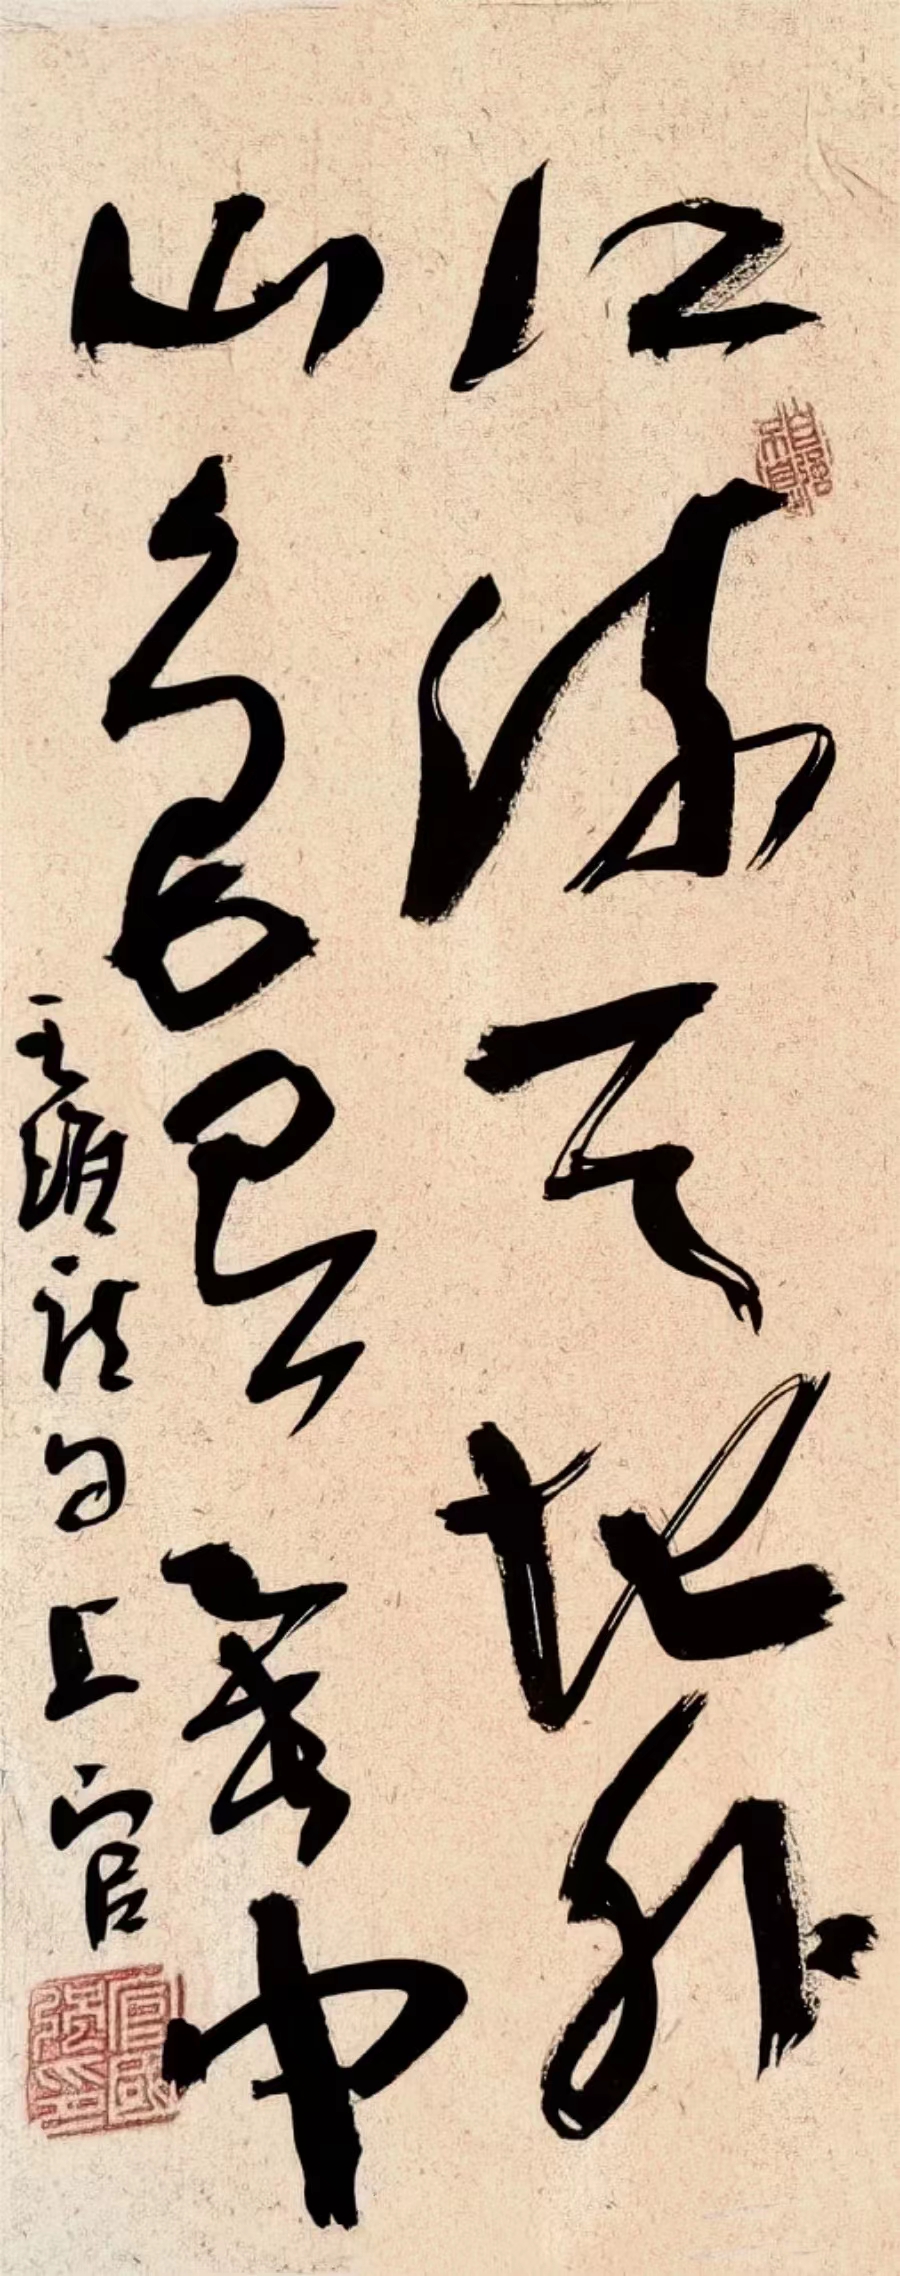 江流天地外
山色有無中
王維詩句 上官